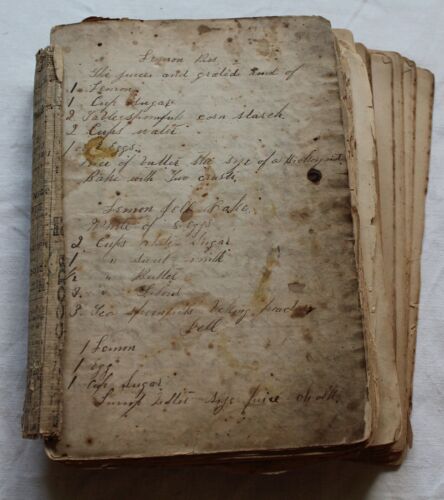 Lemon Pies
The juice and grated rind of
1 Lemon
1 Cup Sugar
2 Tablespoonfuls corn starch
2 Cups water
1 or 2 Eggs
Piece of butter the size of a
Bake with Two crusts
Lemon Jell Cake
Whites of 5 eggs
2 Cups Sugar
1 " sweet milk
1/2 " Butter
3 "
3 Tea spoonfuls baking powder
Jell
1 Lemon
1 egg
1 Cup Sugar
Lump butter size